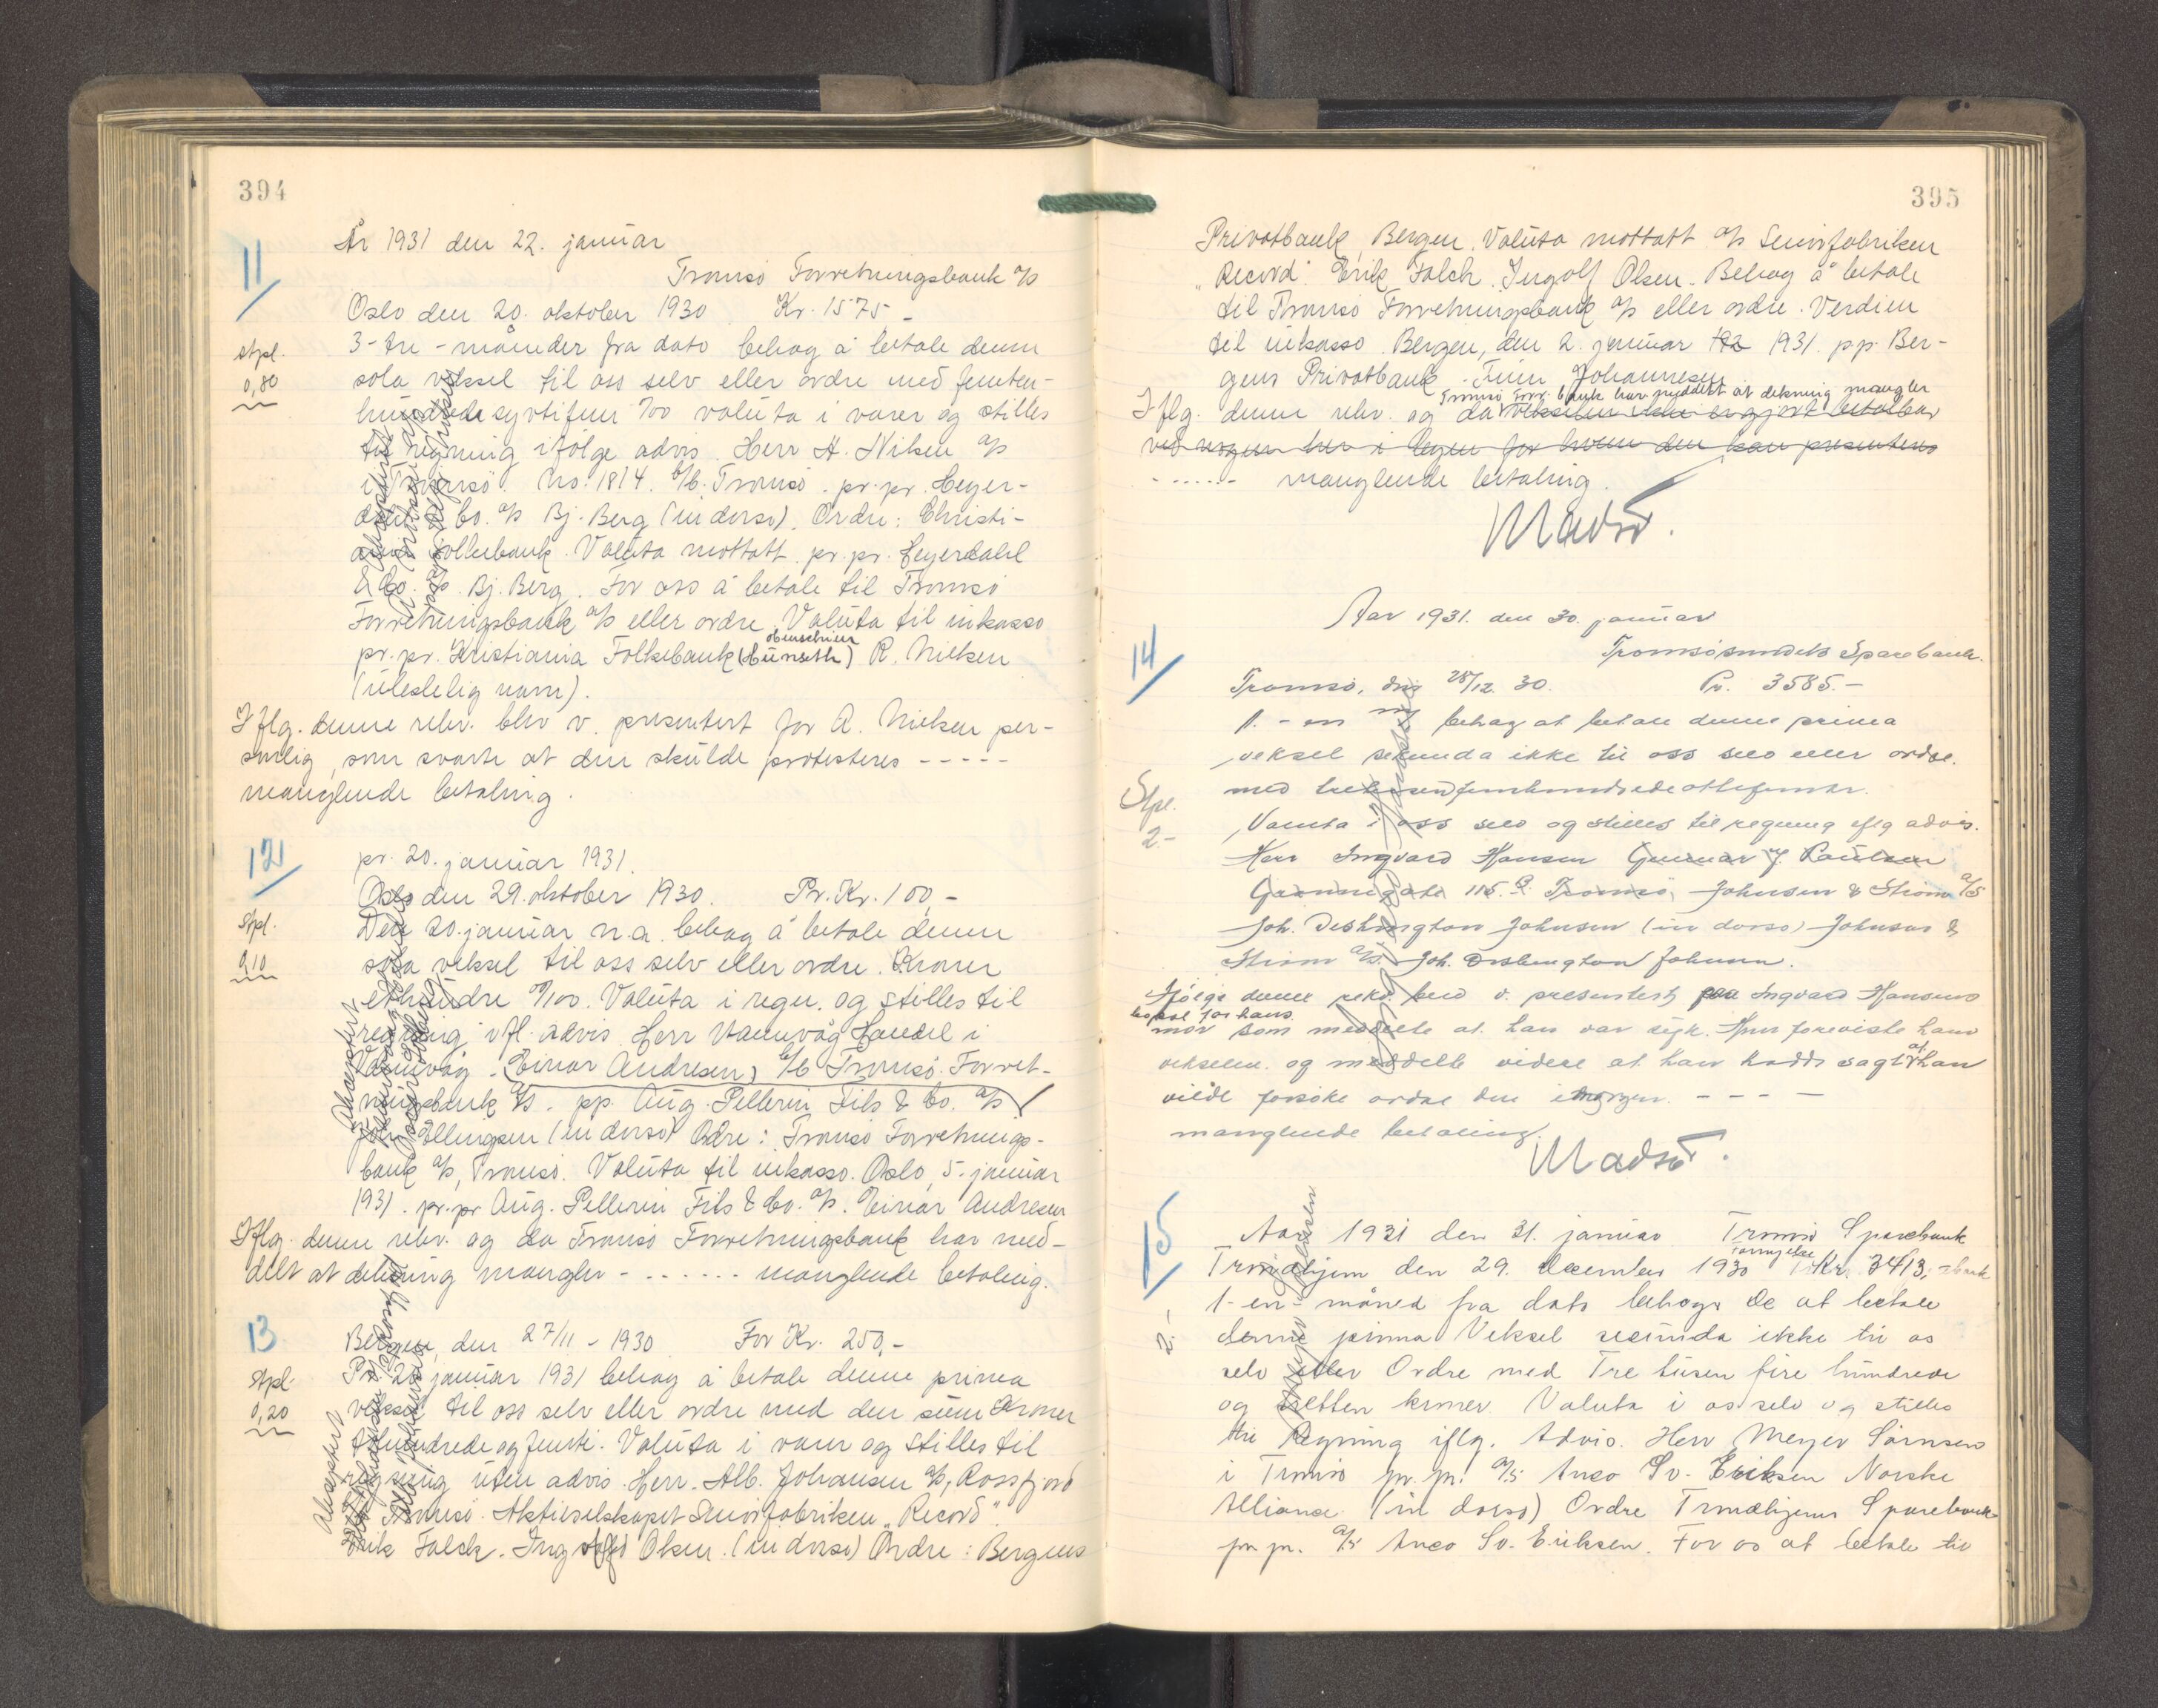 394
År 1931 den 22. januar
11
Tromsö Forretningsbank a/s
Oslo den 20. oktober 1930 Kr. 1575 -
stpl.
0,80
3 - tre - måneder fra dato behag å betale denne
sola veksel til oss selv eller ordre med femten-
hundrede syvtifem %00 valuta i varer og stilles
til regning ifölge advis. Herr A. Nilsen a/s
i Tromsö. No. 1814. b/b. Tromsö. pr. pr. Heyer-
dahl & Co. a/s Bj. Berg (in dorso). Ordre: Christi-
ania Folkebank. Valuta mottatt pr. pr. Heyerdahl
& Co. a/s. Bj. Berg. For oss å betale til Tromsö
Forretningsbank a/s eller ordre. Valuta til inkasso
pr. pr. Kristiania Folkebank R. Nielsen
(uleselig navn).
I flg. denne rekv. blev v. presentert for A. Nielsen per-
sonlig, som svarte at den skulde protesteres - - - - -
manglende betaling.
12
pr. 20. januar 1931.
Oslo den 29. oktober 1930. Pr. Kr. 100,-
stpl.
0,10
Den 20. januar n.a. behag å betale denne
sola veksel til oss selv eller ordre. Kroner
ethundre %100. Valuta i regn. og stilles til
regning i fl. advis Herr Vannvåg Handel i
Vannvåg. (Einar Andresen) b/b Tromsö Forret-
ningsbank a/s. pp. Aug. Pellerin Fils & Co. a/s
Ellingsen (in dorso) Ordre: Tromsö Forretnings-
bank a/s, Tromsö. Valuta til inkasso. Oslo, 5. januar
1931. pr. pr Aug. Pellerin Fils & Co. a/s. Einar Andresen
I flg. denne rekv. og da Tromsö Forretningsbank har med-
delt at dekning mangler - - - - - - - manglende betaling.
13
Bergen, den 27/11 - 1930 For Kr. 250,-
stpl.
0,20
Pr. 20 januar 1931 behag å betale denne prima
veksel til oss selv eller ordre med den sum Kroner
tohundrede og femti. Valuta i varer og stilles til
regning uten advis. Herr. Alb. Johansen a/s, Rossfjord
Tromsö. Aktieselskapet Smörfabriken "Record".
Erik Falch. Ingolf Olsen. (in dorso) Ordre: Bergens
395
Privatbank, Bergen. Valuta mottatt a/s Smörfabriken
"Record". Erik Falch. Ingolf Olsen. Behag å betale
til Tromsö Forretningsbank a/s eller ordre. Verdien
til inkasso. Bergen, den 2. januar 1931. pp. Ber-
gens Privatbank. Johannesen
Tromsö Forr. bank har meddelt at dekning mangler
I flg. denne rekv. og da vekselen ikke er gjort betalbar
ved nogen her i byen for hvem den kan presenteres
- - - - - - manglende betaling.
Madsö.
Aar 1931. den 30. januar
14
Tromsösundets Sparebank.
Tromsö, den 28/12. 30. Pr. 3585.-
1. - en behag at betale denne prima
veksel sekunda ikke til oss selv eller ordre.
Stpl.
2-
med tretusenfemhundredeottifemkr.
Valuta i oss selv og stilles til regning iflg advis.
Herr Ingvard Hansen Gunnar J. Paulsen
Grønnegate 115. B. Tromsö, Johnsen & Strøm a/s
Joh. Deshington Johnsen (in dorso) Johnsen &
Strøm a/s. Joh. Deshington Johnsen.
Ifölge denne rekv. blev v. presentert paa Ingvard Hansens
bopæl for hans
mor som meddelte at han var syk. Hun foreviste ham
vekselen. og meddelte videre at han hadde sagt at han
vilde forsöke ordne den imorgen. - - - -
manglende betaling.
Madsö.
15
Aar 1931 den 31. januar Tromsö Sparebank
Trondhjem den 29. december 1930 Kr. 3413,-
2.-
1-en- måned fra dato behage De at betale
denne prima Veksel secunda ikke til os
selv eller Ordre med Tre tusen fire hundrede
og tretten kroner. Valuta i os selv og stilles
til Regning iflg. Advis. Herr Meyer Sörnsen
i Tromsö pr. pr. a/s Anco Sv. Eriksen Norske
Alliance. (in dorso) Ordre Trondhjems Sparebank
pr. pr. a/s Anco Sv. Eriksen. For os at betale til